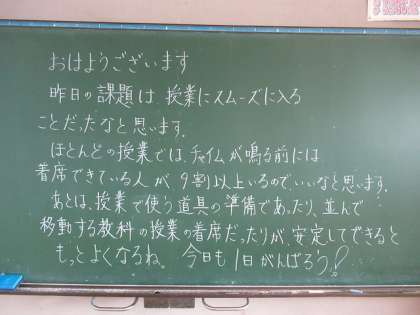 おはようございます
昨日の課題は、授業にスムーズに入る
ことだったなと思います。
ほとんどの授業では、チャイムが鳴る前には
着席できている人が9割以上いるので、いいなと思います。
あとは、授業で使う道具の準備であったり、並んで
移動する教科の授業の着席だったりが、安定してできると
もっとよくなるね。今日も1日がんばろう!